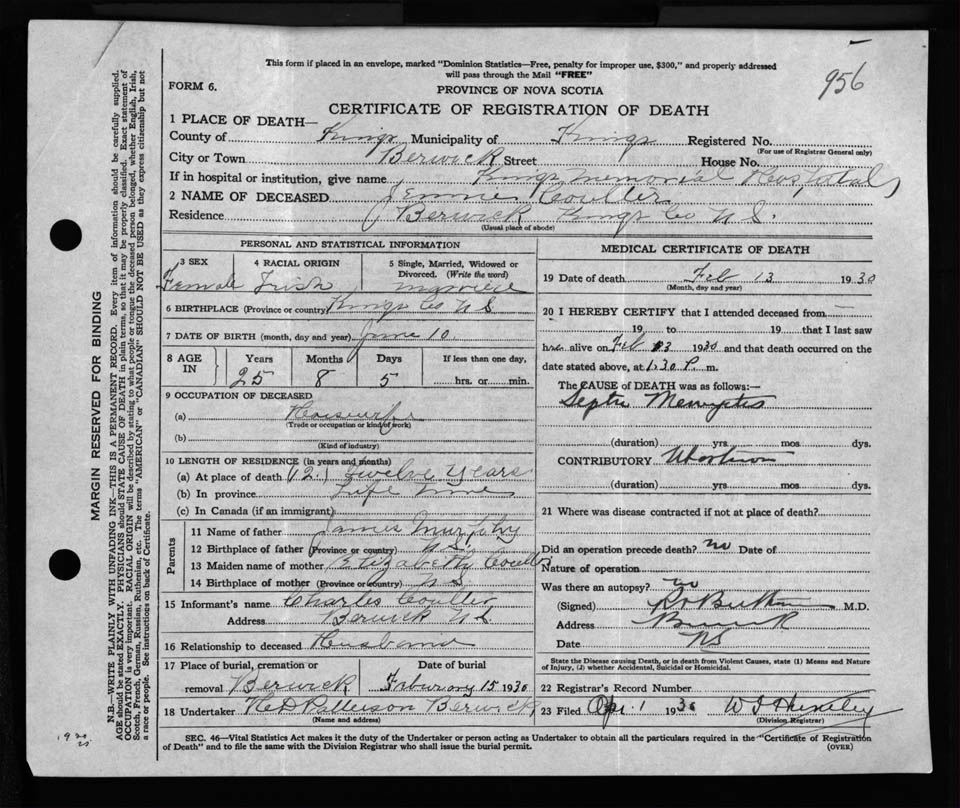 This form if placed in an envelope, marked "Dominion Statistics—Free, penalty for improper use, $300," and properly addressed
will pass through the Mail "FREE"
956
FORM 6.
PROVINCE OF NOVA SCOTIA
CERTIFICATE OF REGISTRATION OF DEATH
1 PLACE OF DEATH—
County of Kings Municipality of Kings Registered No.
(For use of Registrar General only)
City or Town Berwick Street House No.
If in hospital or institution, give name Kings Memorial Hospital
2 NAME OF DECEASED Jennie Coulter
Residence Berwick Kings Co N.S.
(Usual place of abode)
PERSONAL AND STATISTICAL INFORMATION
3 SEX 4 RACIAL ORIGIN 5 Single, Married, Widowed or Divorced. (Write the word)
Female Irish married
6 BIRTHPLACE (Province or country) Kings Co N S
7 DATE OF BIRTH (month, day and year) June 10
8 AGE IN Years Months Days If less than one day,
25 8 5 hrs. or min.
9 OCCUPATION OF DECEASED
(a) Houswife
(Trade or occupation or kind of work)
(b)
(Kind of industry)
10 LENGTH OF RESIDENCE (in years and months)
(a) At place of death (12) Twelve years
(b) In province Life time
(c) In Canada (if an immigrant)
Parents
11 Name of father James Murphy
12 Birthplace of father (Province or country) N.S.
13 Maiden name of mother Elizabeth Coulter
14 Birthplace of mother (Province or country) N S
15 Informant's name Charles Coulter
Address Berwick N.S.
16 Relationship to deceased Husband
17 Place of burial, cremation or removal Berwick Date of burial 15 1930
18 Undertaker Patterson Berwick
(Name and address)
MEDICAL CERTIFICATE OF DEATH
19 Date of death Feb 13 1930
(Month, day and year)
20 I HEREBY CERTIFY that I attended deceased from
19 to 19 that I last saw
her alive on Feb 13 1930 and that death occurred on the
date stated above, at 1.30 P. m.
The CAUSE OF DEATH was as follows:—
Septic
(duration) yrs. mos. dys.
CONTRIBUTORY Abortion
(duration) yrs. mos. dys.
21 Where was disease contracted if not at place of death?
Did an operation precede death? no Date of
Nature of operation
Was there an autopsy? no
(Signed) M.D.
Address Berwick
Date NS
State the Disease causing Death, or in death from Violent Causes, state (1) Means and Nature
of Injury, (2) whether Accidental, Suicidal or Homicidal.
22 Registrar's Record Number
23 Filed Apr. 1 1930
(Division Registrar)
SEC. 46—Vital Statistics Act makes it the duty of the Undertaker or person acting as Undertaker to obtain all the particulars required in the "Certificate of Registration
of Death" and to file the same with the Division Registrar who shall issue the burial permit.
(OVER)
MARGIN RESERVED FOR BINDING
N.B—WRITE PLAINLY WITH UNFADING INK—THIS IS A PERMANENT RECORD. Every item of information should be carefully supplied.
AGE should be stated EXACTLY. PHYSICIANS should STATE CAUSE OF DEATH in plain terms, so that it may be properly classified. Exact statement of
OCCUPATION is very important. RACIAL ORIGIN will be described by stating to what people or tongue the deceased person belonged, whether English, Irish,
Scotch, French, German, Russian, Ruthenian, etc. The terms "AMERICAN" or "CANADIAN" SHOULD NOT BE USED as they express citizenship but not
a race or people. See instructions on back of Certificate.